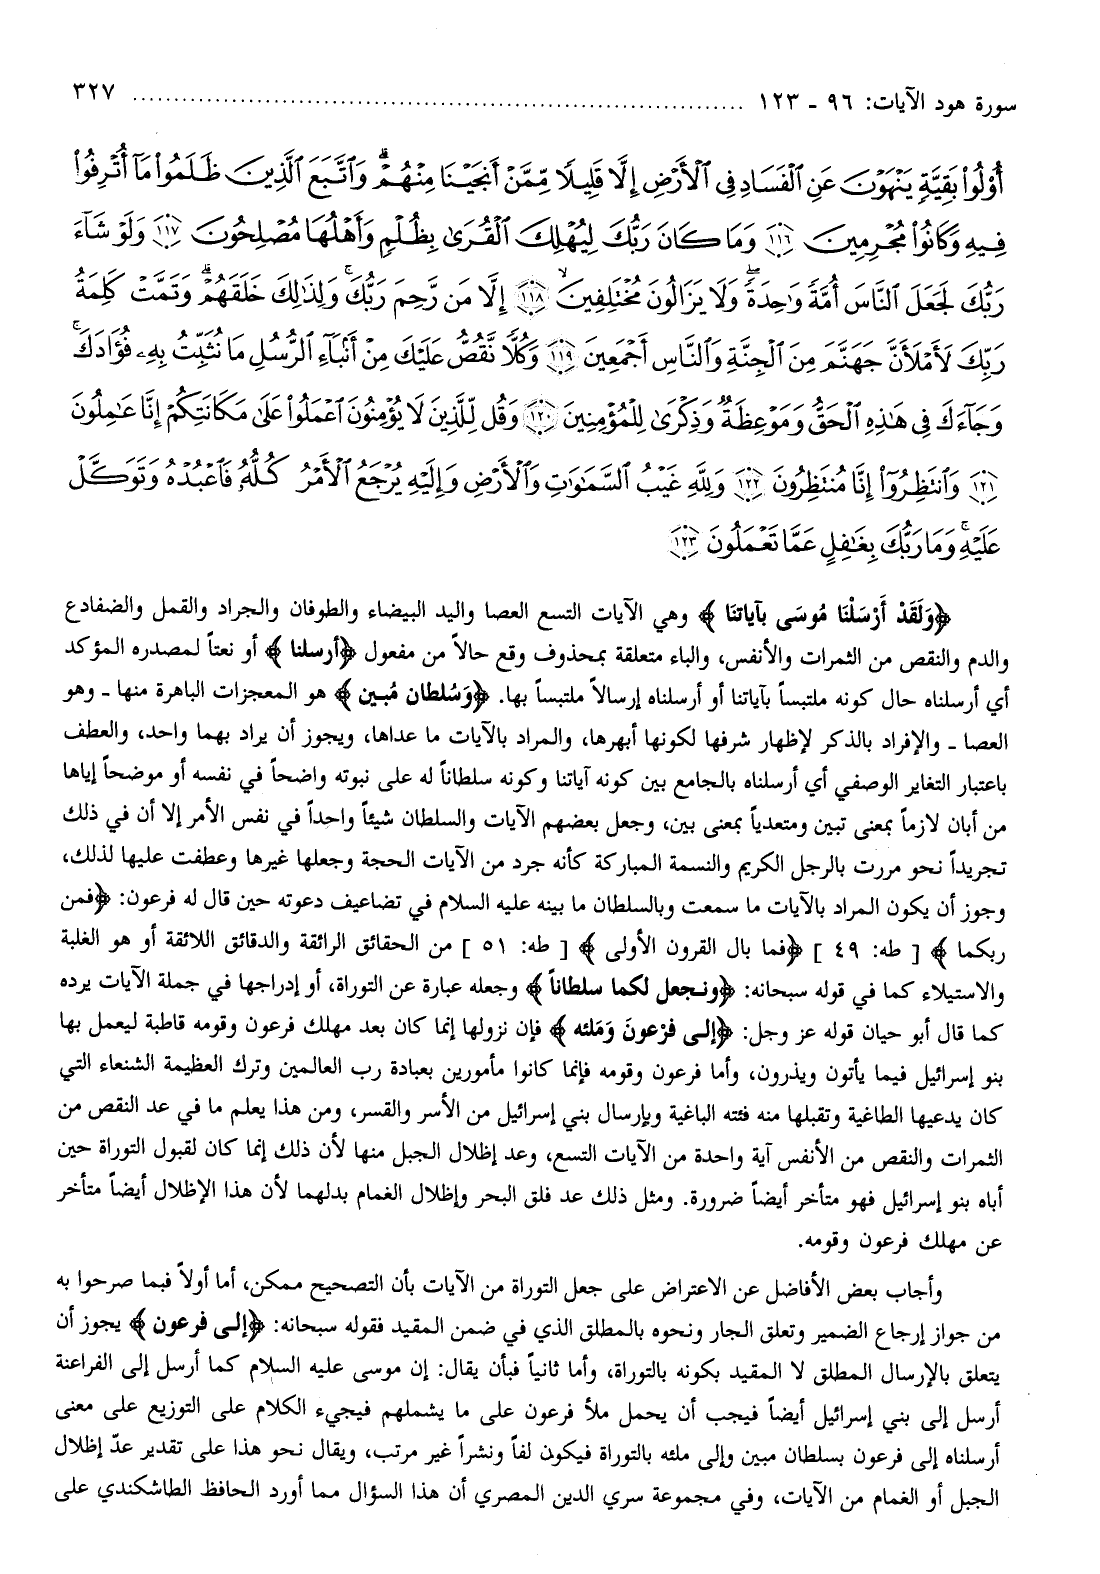 سورة هود الآيات: ٩٦ - ١٢٣ ........................................................................ ٣٢٧
أُوْلُواْ بَقِيَّةٍ يَنْهَوْنَ عَنِ ٱلْفَسَادِ فِى ٱلْأَرْضِ إِلَّا قَلِيلًا مِّمَّنْ أَنجَيْنَا مِنْهُمْ ۗ وَٱتَّبَعَ ٱلَّذِينَ ظَلَمُواْ مَآ أُتْرِفُواْ
فِيهِ وَكَانُواْ مُجْرِمِينَ ١١٦ وَمَا كَانَ رَبُّكَ لِيُهْلِكَ ٱلْقُرَىٰ بِظُلْمٍ وَأَهْلُهَا مُصْلِحُونَ ١١٧ وَلَوْ شَآءَ
رَبُّكَ لَجَعَلَ ٱلنَّاسَ أُمَّةً وَٰحِدَةً ۖ وَلَا يَزَالُونَ مُخْتَلِفِينَ ١١٨ إِلَّا مَن رَّحِمَ رَبُّكَ ۚ وَلِذَٰلِكَ خَلَقَهُمْ ۗ وَتَمَّتْ كَلِمَةُ
رَبِّكَ لَأَمْلَأَنَّ جَهَنَّمَ مِنَ ٱلْجِنَّةِ وَٱلنَّاسِ أَجْمَعِينَ ١١٩ وَكُلًّا نَّقُصُّ عَلَيْكَ مِنْ أَنۢبَآءِ ٱلرُّسُلِ مَا نُثَبِّتُ بِهِۦ فُؤَادَكَ ۚ
وَجَآءَكَ فِى هَٰذِهِ ٱلْحَقُّ وَمَوْعِظَةٌ وَذِكْرَىٰ لِلْمُؤْمِنِينَ ١٢٠ وَقُل لِّلَّذِينَ لَا يُؤْمِنُونَ ٱعْمَلُواْ عَلَىٰ مَكَانَتِكُمْ إِنَّا عَٰمِلُونَ
١٢١ وَٱنتَظِرُوٓاْ إِنَّا مُنتَظِرُونَ ١٢٢ وَلِلَّهِ غَيْبُ ٱلسَّمَٰوَٰتِ وَٱلْأَرْضِ وَإِلَيْهِ يُرْجَعُ ٱلْأَمْرُ كُلُّهُۥ فَٱعْبُدْهُ وَتَوَكَّلْ
عَلَيْهِ ۚ وَمَا رَبُّكَ بِغَٰفِلٍ عَمَّا تَعْمَلُونَ ١٢٣
﴿وَلَقَدْ أَرْسَلْنَا مُوسَى بآياتنَا﴾ وهي الآيات التسع العصا واليد البيضاء والطوفان والجراد والقمل والضفادع
والدم والنقص من الثمرات والأنفس، والباء متعلقة بمحذوف وقع حالاً من مفعول ﴿أرسلنا﴾ أو نعتاً لمصدره المؤكد
أي أرسلناه حال كونه ملتبساً بآياتنا أو أرسلناه إرسالاً ملتبساً بها. ﴿وَسُلطان مُبين﴾ هو المعجزات الباهرة منها ـ وهو
العصا ـ والإفراد بالذكر لإظهار شرفها لكونها أبهرها، والمراد بالآيات ما عداها، ويجوز أن يراد بهما واحد، والعطف
باعتبار التغاير الوصفي أي أرسلناه بالجامع بين كونه آياتنا وكونه سلطاناً له على نبوته واضحاً في نفسه أو موضحاً إياها
من أبان لازماً بمعنى تبين ومتعدياً بمعنى بين، وجعل بعضهم الآيات والسلطان شيئاً واحداً في نفس الأمر إلا أن في ذلك
تجريداً نحو مررت بالرجل الكريم والنسمة المباركة كأنه جرد من الآيات الحجة وجعلها غيرها وعطفت عليها لذلك،
وجوز أن يكون المراد بالآيات ما سمعت وبالسلطان ما بينه عليه السلام في تضاعيف دعوته حين قال له فرعون: ﴿فمن
ربكما﴾ [ طه: ٤٩ ] ﴿فما بال القرون الأولى﴾ [ طه: ٥١ ] من الحقائق الرائقة والدقائق اللائقة أو هو الغلبة
والاستيلاء كما في قوله سبحانه: ﴿ونجعل لكما سلطاناً﴾ وجعله عبارة عن التوراة، أو إدراجها في جملة الآيات يرده
كما قال أبو حيان قوله عز وجل: ﴿إلى فرْعونَ وَمَلئه﴾ فإن نزولها إنما كان بعد مهلك فرعون وقومه قاطبة ليعمل بها
بنو إسرائيل فيما يأتون ويذرون، وأما فرعون وقومه فإنما كانوا مأمورين بعبادة رب العالمين وترك العظيمة الشنعاء التي
كان يدعيها الطاغية وتقبلها منه فئته الباغية وبإرسال بني إسرائيل من الأسر والقسر، ومن هذا يعلم ما في عد النقص من
الثمرات والنقص من الأنفس آية واحدة من الآيات التسع، وعد إظلال الجبل منها لأن ذلك إنما كان لقبول التوراة حين
أباه بنو إسرائيل فهو متأخر أيضاً ضرورة. ومثل ذلك عد فلق البحر وإظلال الغمام بدلهما لأن هذا الإظلال أيضاً متأخر
عن مهلك فرعون وقومه.
وأجاب بعض الأفاضل عن الاعتراض على جعل التوراة من الآيات بأن التصحيح ممكن، أما أولاً فبما صرحوا به
من جواز إرجاع الضمير وتعلق الجار ونحوه بالمطلق الذي في ضمن المقيد فقوله سبحانه: ﴿إلى فرعون﴾ يجوز أن
يتعلق بالإرسال المطلق لا المقيد بكونه بالتوراة، وأما ثانياً فبأن يقال: إن موسى عليه السلام كما أرسل إلى الفراعنة
أرسل إلى بني إسرائيل أيضاً فيجب أن يحمل ملأ فرعون على ما يشملهم فيجيء الكلام على التوزيع على معنى
أرسلناه إلى فرعون بسلطان مبين وإلى ملئه بالتوراة فيكون لفاً ونشراً غير مرتب، ويقال نحو هذا على تقدير عدّ إظلال
الجبل أو الغمام من الآيات، وفي مجموعة سري الدين المصري أن هذا السؤال مما أورد الحافظ الطاشكندي على